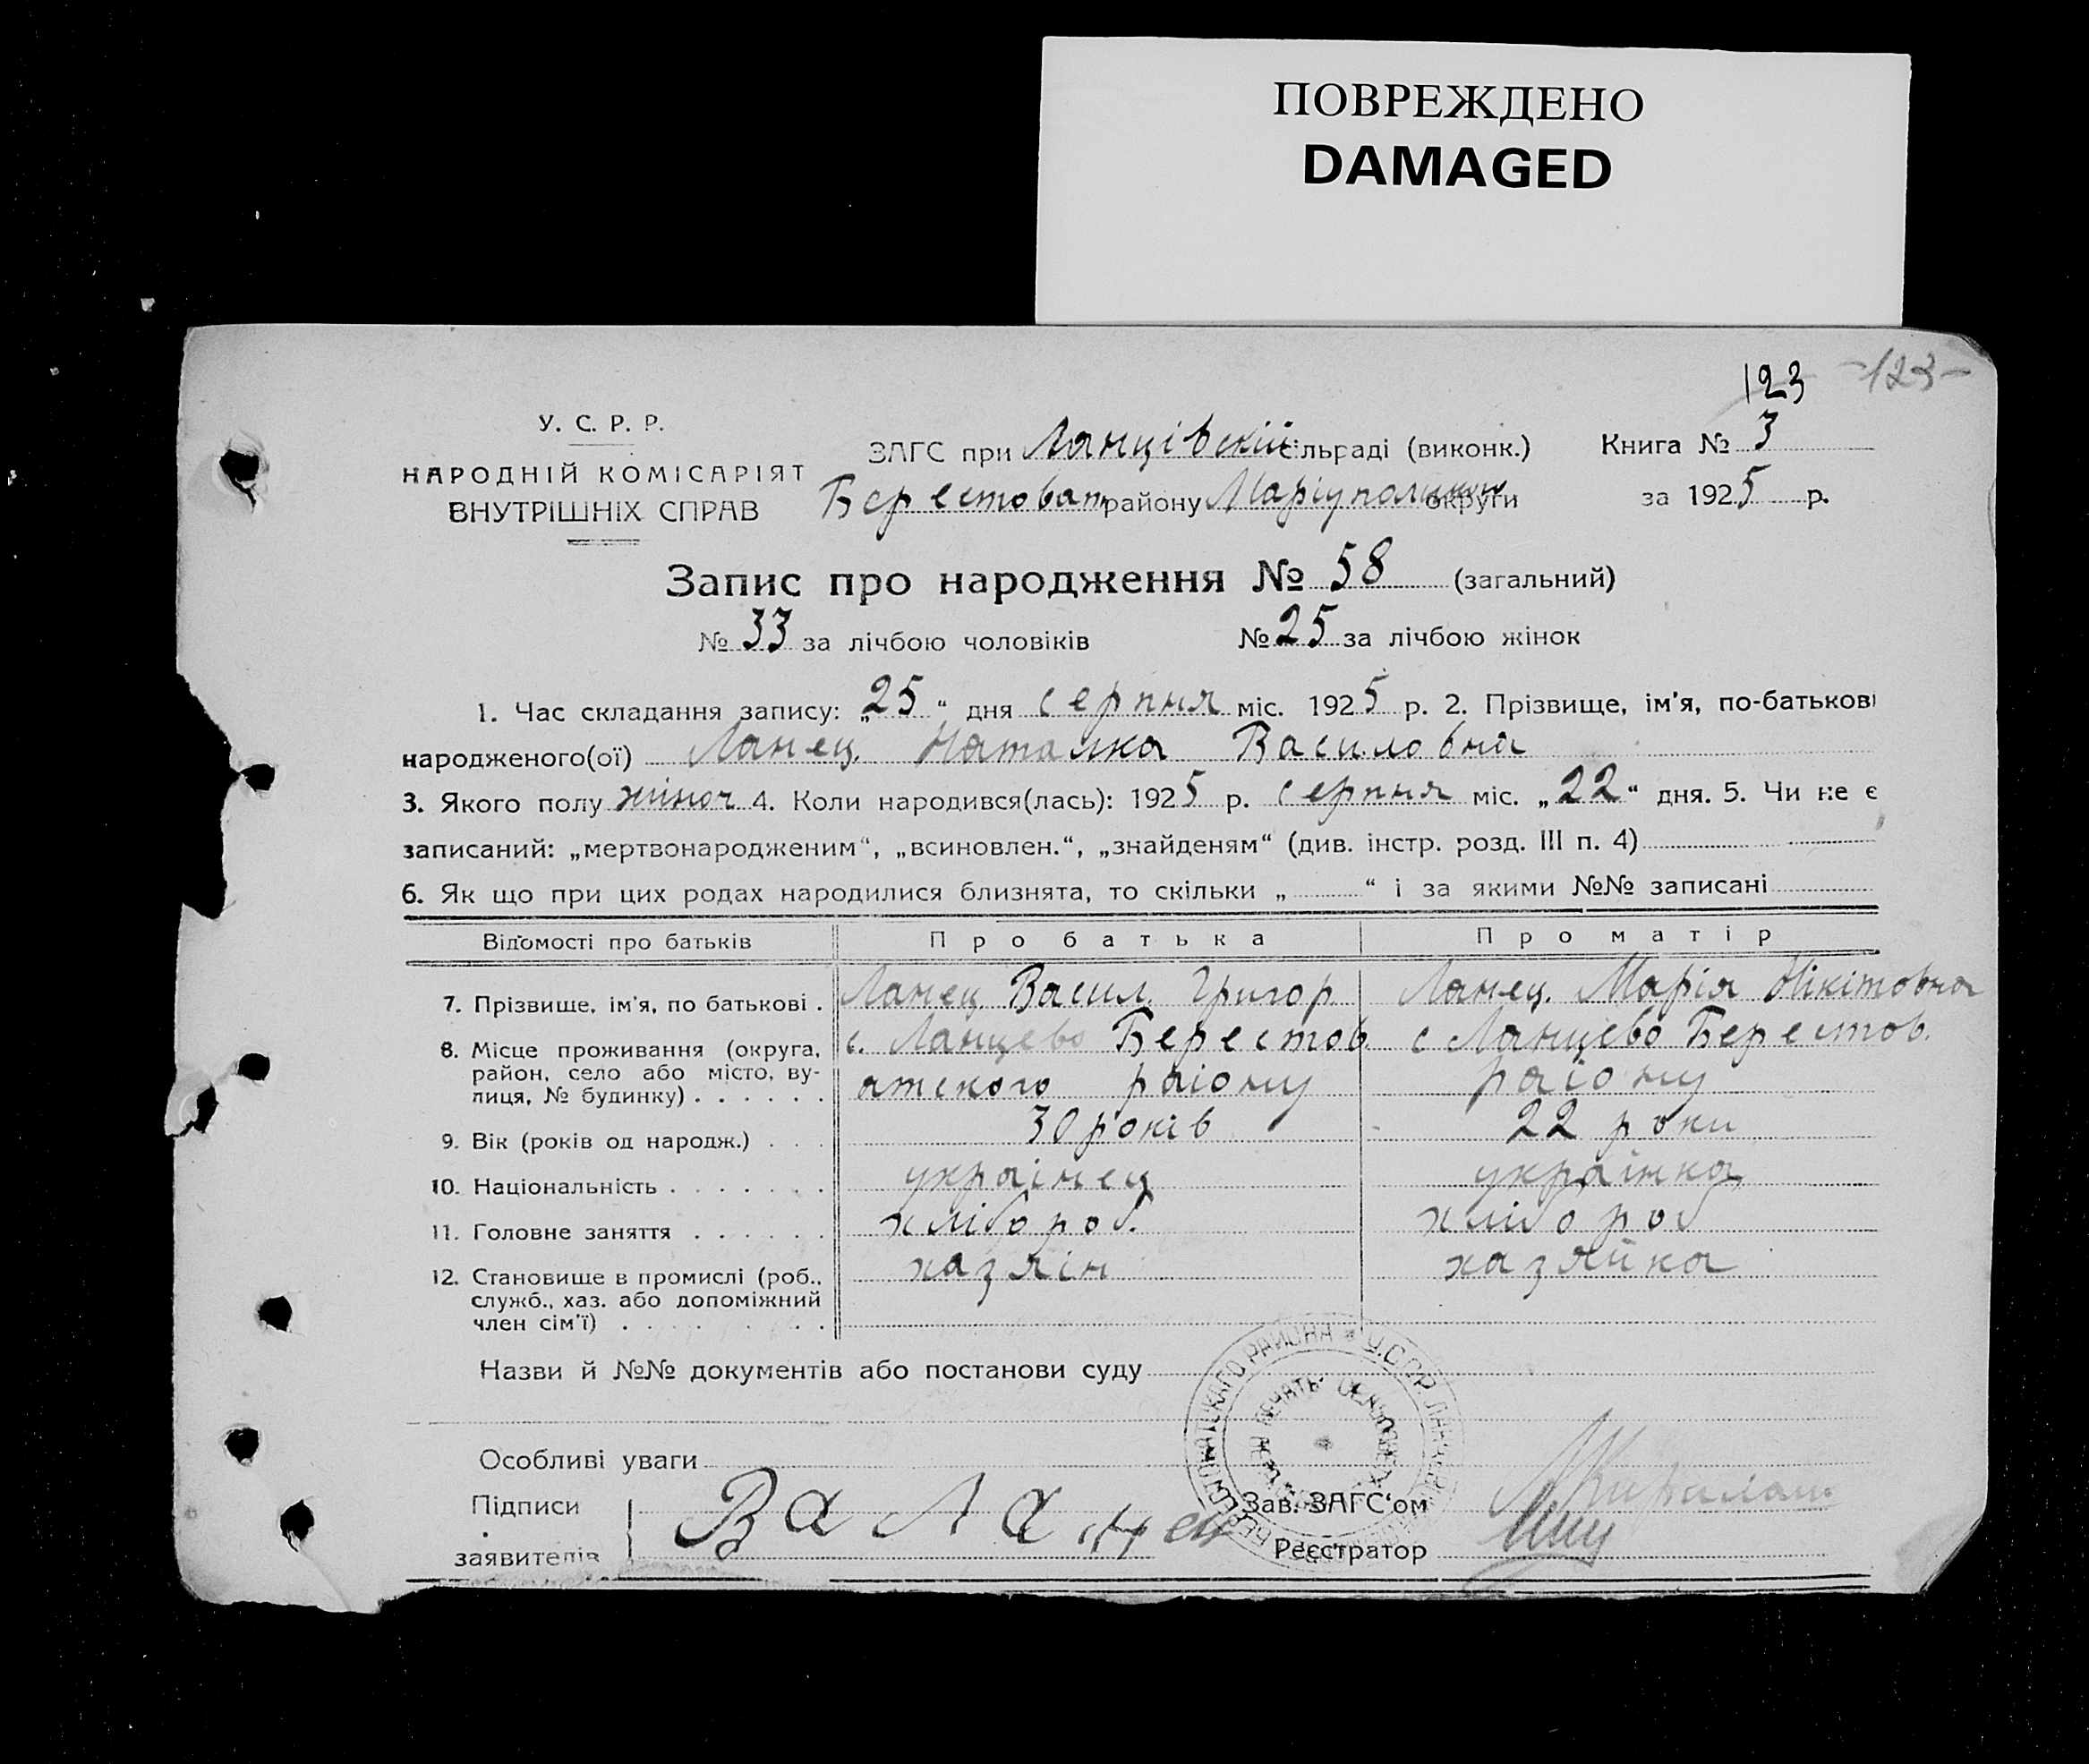 ПОВРЕЖДЕНО
DAMAGED
123 -123-
У. С. Р. Р.
НАРОДНІЙ КОМІСАРІЯТ
ВНУТРІШНІХ СПРАВ
ЗАГС при Ланцівскій сільраді (виконк.) Книга № 3
Берестоват району Маріупольськ округи за 1925 р.
Запис про народження № 58 (загальний)
№ 33 за лічбою чоловіків № 25 за лічбою жінок
1. Час складання запису: „25“ дня серпня міс. 1925 р. 2. Прізвище, ім'я, по-батькові
народженого(ої) Ланец Наталка Василовна
3. Якого полу жіноч 4. Коли народився(лась): 1925 р. серпня міс. „22“ дня. 5. Чи не є
записаний: „мертвонародженим“, „всиновлен.“, „знайденям“ (див. інстр. розд. III п. 4)
6. Як що при цих родах народилися близнята, то скільки „ “ і за якими №№ записані
Відомості про батьків Про батька Про матір
7. Прізвище, ім'я, по батькові . Ланец Васил. Григор Ланец. Марія Нікітовна
8. Місце проживання (округа, район, село або місто, вулиця, № будинку) . . . . . . с. Ланцево Берестов с Ланцево Берестов.
атского раіону раіону
9. Вік (років од народж.) . . . 30 років 22 роки
10. Національність . . . . . . . украінец украінка
11. Головне заняття . . . . . . хлібороб. хлібороб
12. Становище в промислі (роб., служб., хаз. або допоміжний член сім'ї) . . . . . . . хазяін хазяйка
Назви й №№ документів або постанови суду
БЕРЕСТОВАТСКАГО РАЙОНА * У.С.С.Р.
ПЕЧАТЬ
Особливі уваги
Підписи заявителів Ва Ланец
Зав. ЗАГС'ом
Реєстратор